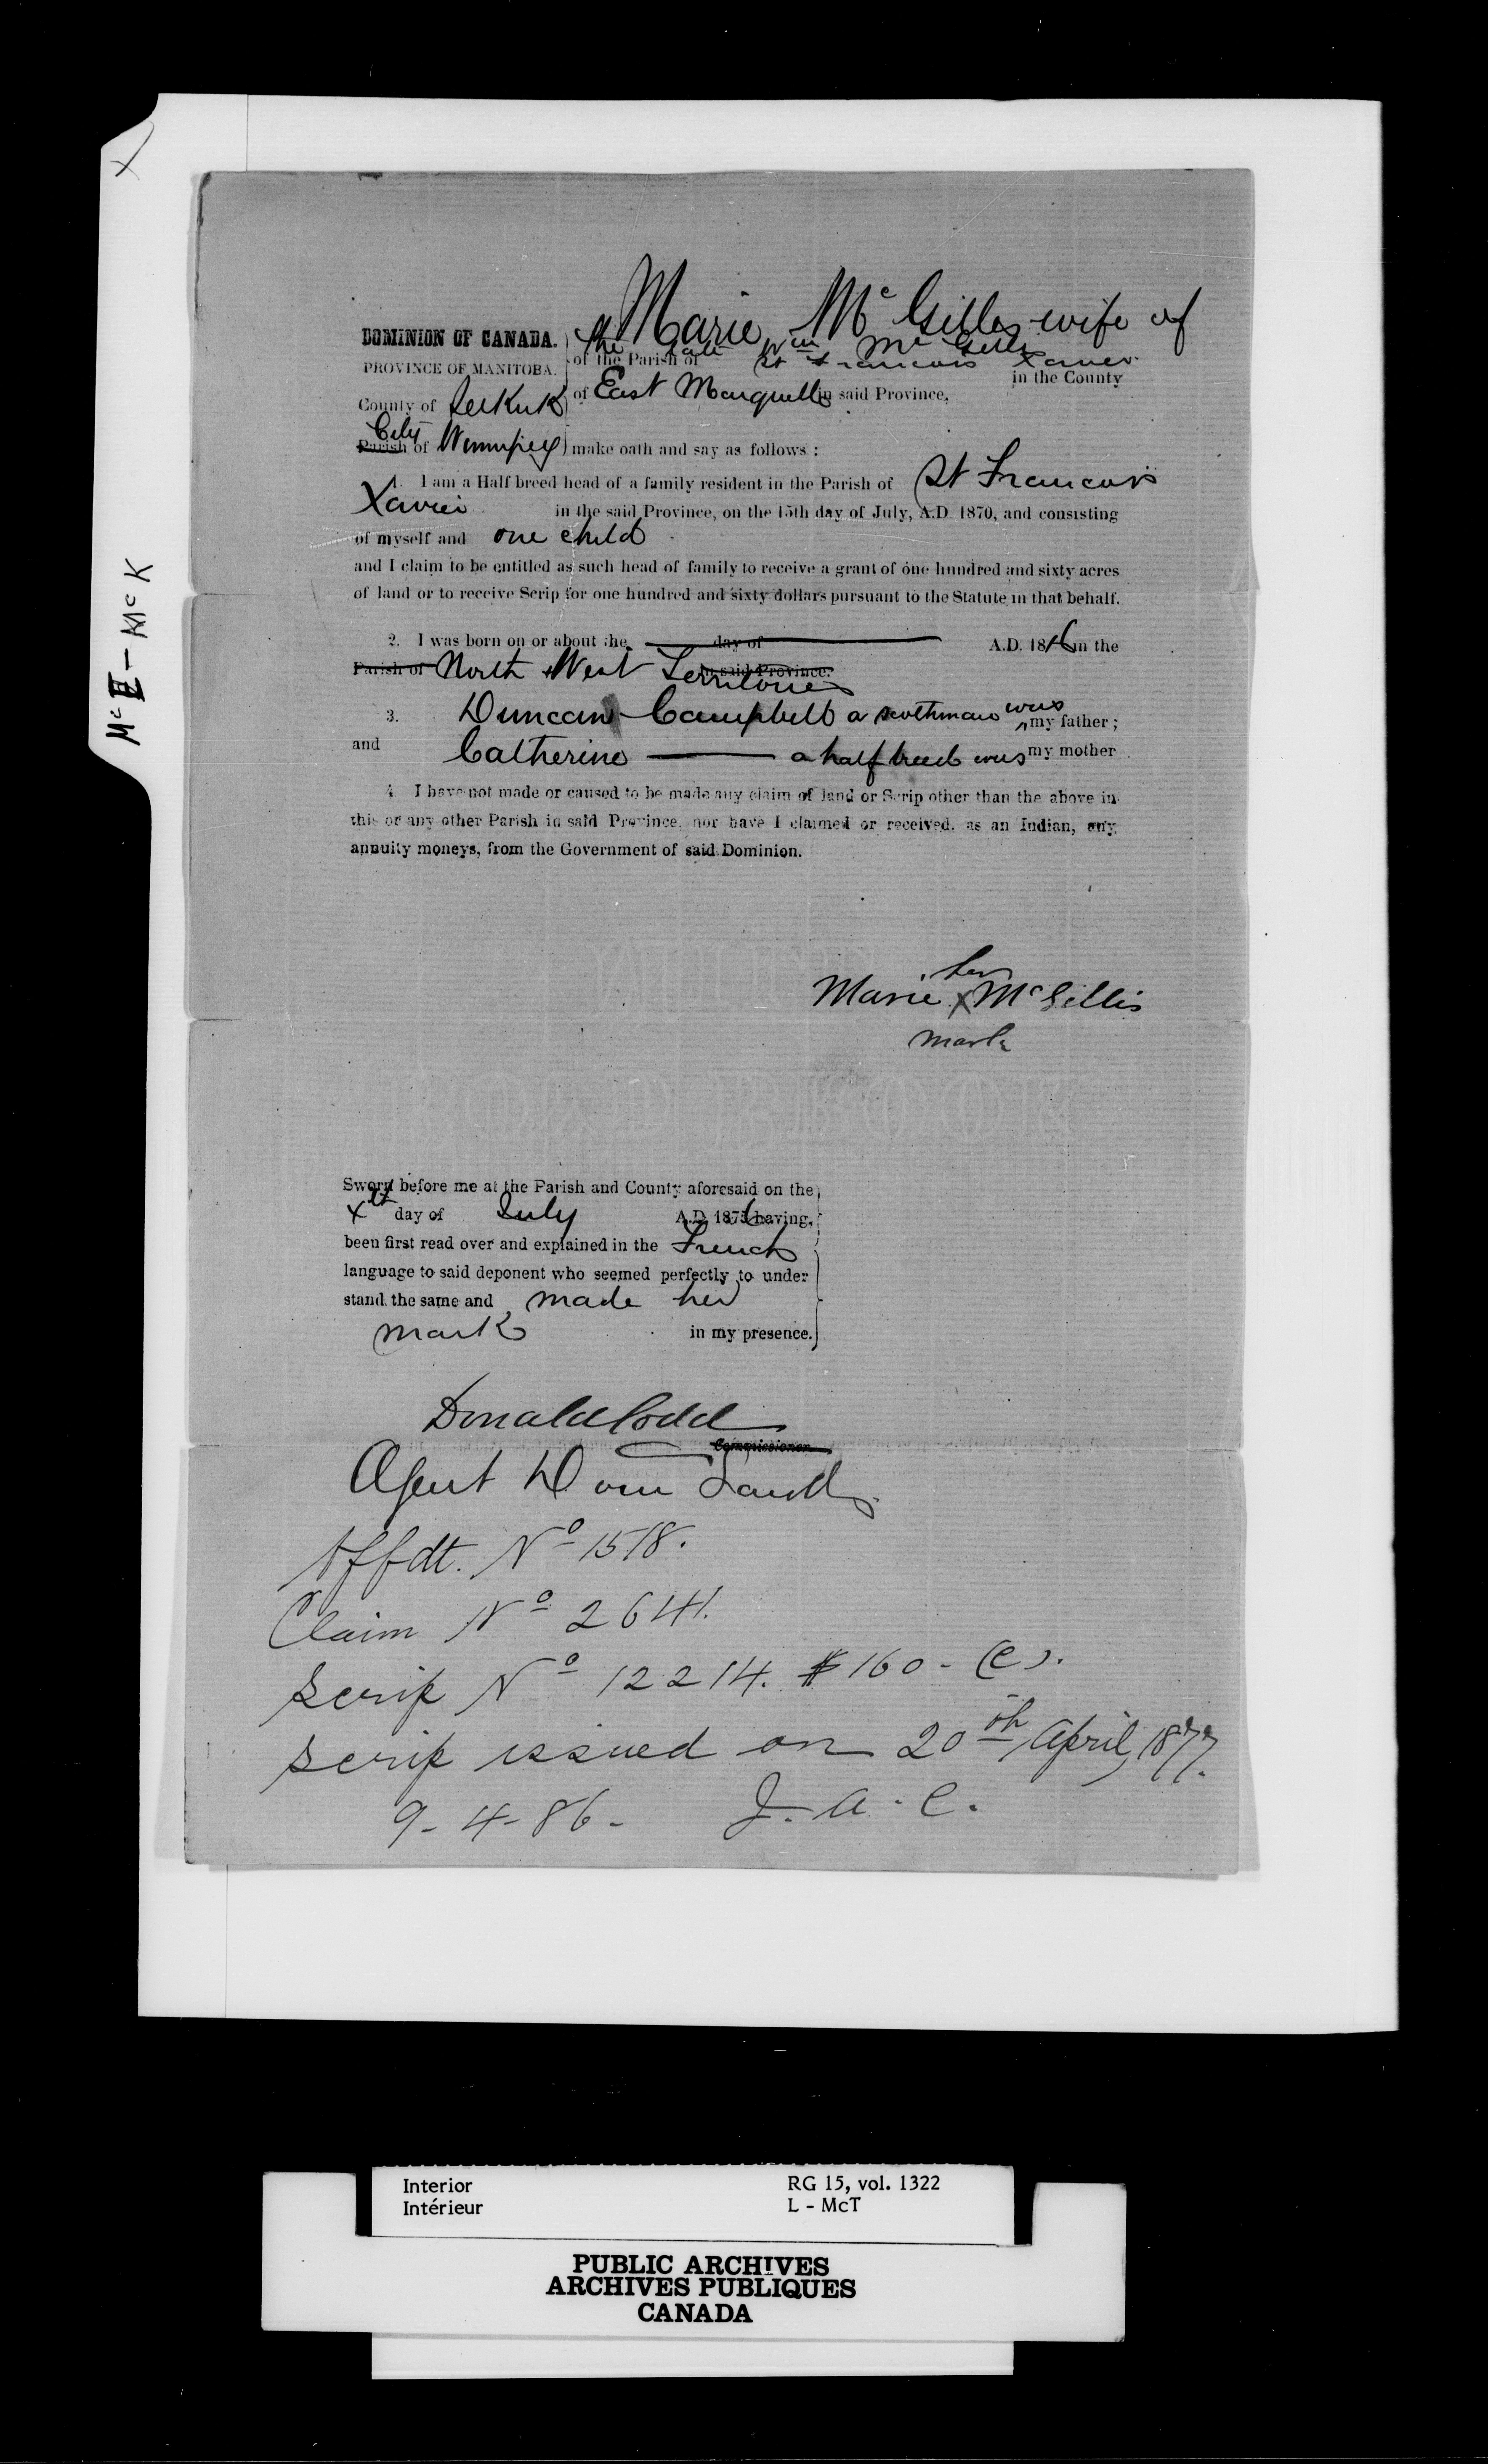 X
Mc II - Mc K
DOMINION OF CANADA.
PROVINCE OF MANITOBA.
County of Selkirk
City
Parish of Winnipeg
I Marie McGillis wife of
the late Wm McGillis
of the Parish of St Francois Xavier
in the County
of East Marquette in said Province,
make oath and say as follows :
1. I am a Half breed head of a family resident in the Parish of St Francois
Xavier in the said Province, on the 15th day of July, A.D. 1870, and consisting
of myself and one child
and I claim to be entitled as such head of family to receive a grant of one hundred and sixty acres
of land or to receive Scrip for one hundred and sixty dollars pursuant to the Statute in that behalf.
2. I was born on or about the day of A.D. 1816 in the
Parish of North West Territories in said Province.
3. Duncan Campbell a scothman was my father ;
and Catherine — a half breed was my mother
4. I have not made or caused to be made any claim of land or Scrip other than the above in
this or any other Parish in said Province, nor have I claimed or received, as an Indian, any
annuity moneys, from the Government of said Dominion.
her
Marie X McGillis
mark
Sworn before me at the Parish and County aforesaid on the
day of July A.D. 1876 having,
been first read over and explained in the French
language to said deponent who seemed perfectly to under
stand the same and made her
mark in my presence.
Donald Codd
Commissioner
Agent Dom Lands
Affdt. No 1518.
Claim No 2641.
Scrip No 12214. $160 - (C).
Scrip issued on 20th April, 1877.
9-4-86- J. A. C.
Interior RG 15, vol. 1322
Intérieur L - McT
PUBLIC ARCHIVES
ARCHIVES PUBLIQUES
CANADA